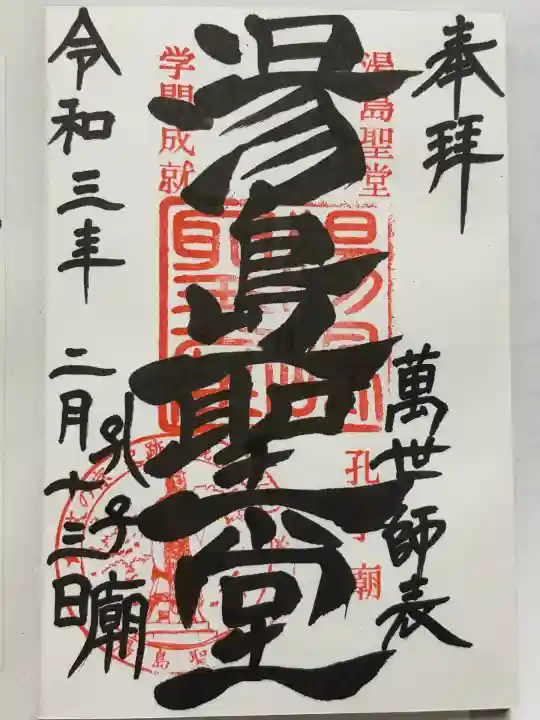 奉拝
萬世師表
湯島聖堂
孔子廟
湯島聖堂
学問成就
孔子廟
令和三年
二月十三日